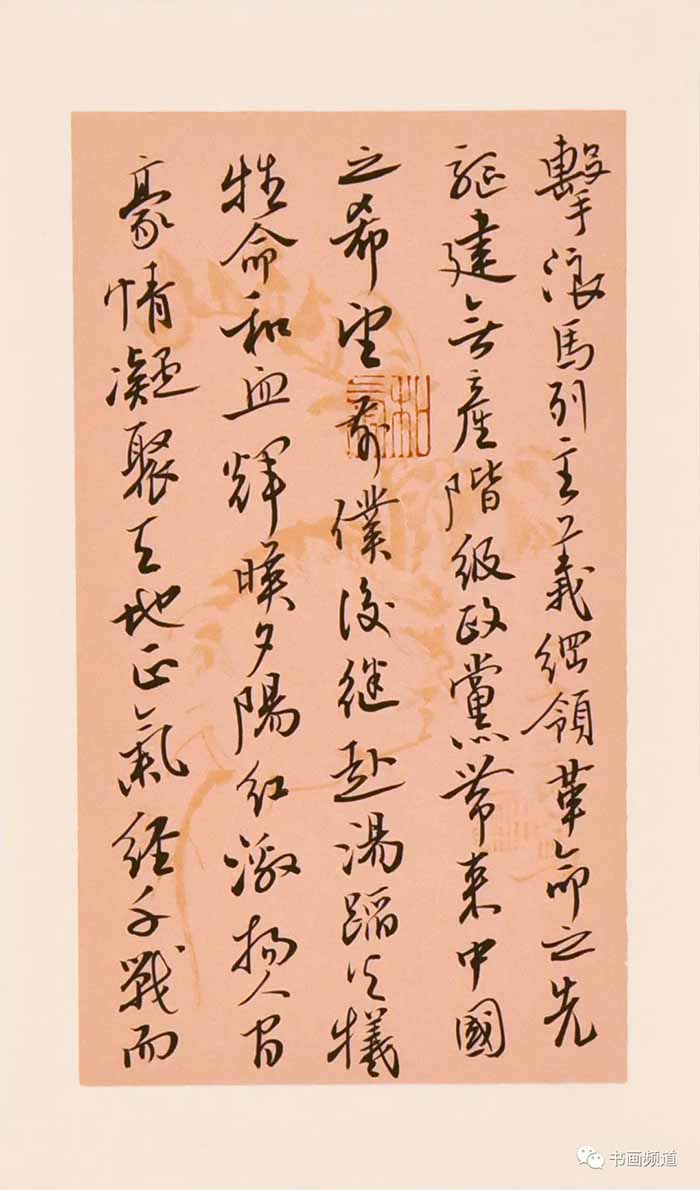 擊浪馬列主義綱領革命之先
驅建無產階級政黨帶來中國
之希望前僕後继赴湯蹈火犧
牲命和血輝暎夕陽红激揚人间
豪情凝聚天地正氣經千戰而
书画频道